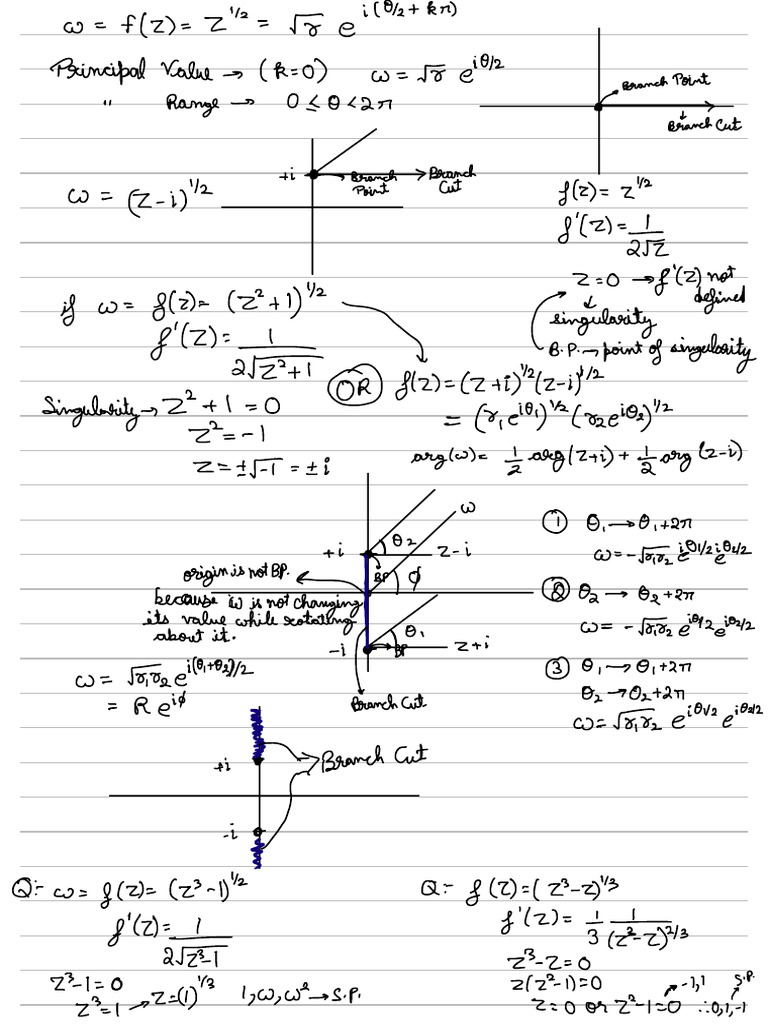 ω = f(z) = z^{1/2} = √r e^{i(θ/2 + kπ)}
Principal Value → (k=0)   ω = √r e^{iθ/2}
"   Range → 0 ≤ θ < 2π
Branch Point
Branch Cut
+i
Branch Point
Branch Cut
ω = (z-i)^{1/2}
f(z) = z^{1/2}
f'(z) = 1/(2√z)
z=0 → f'(z) not defined
↓
singularity
B.P. → point of singularity
if ω = f(z) = (z²+1)^{1/2}
f'(z) = 1/(2√(z²+1))
Singularity → z²+1 = 0
z² = -1
z = ±√-1 = ±i
OR f(z) = (z+i)^{1/2} (z-i)^{1/2}
= (r₁e^{iθ₁})^{1/2} (r₂e^{iθ₂})^{1/2}
arg(ω) = 1/2 arg(z+i) + 1/2 arg(z-i)
ω
+i   θ₂   z-i
BP   φ
origin is not BP.
because ω is not changing
its value while rotating
about it.
θ₁
-i   BP   z+i
Branch Cut
① θ₁ → θ₁+2π
ω = -√r₁r₂ e^{iθ₁/2} e^{iθ₂/2}
② θ₂ → θ₂+2π
ω = -√r₁r₂ e^{iθ₁/2} e^{iθ₂/2}
③ θ₁ → θ₁+2π
θ₂ → θ₂+2π
ω = √r₁r₂ e^{iθ₁/2} e^{iθ₂/2}
ω = √r₁r₂ e^{i(θ₁+θ₂)/2}
= R e^{iφ}
+i
Branch Cut
-i
Q:- ω = f(z) = (z³-1)^{1/2}
f'(z) = 1/(2√(z³-1))
z³-1 = 0
z³ = 1 → z = (1)^{1/3}   1, ω, ω² → S.P.
Q:- f(z) = (z³-z)^{1/3}
f'(z) = 1/3 1/(z²-z)^{2/3}
z³-z = 0
z(z²-1) = 0   -1,1   S.P.
z=0 or z²-1=0 ∴ 0,1,-1